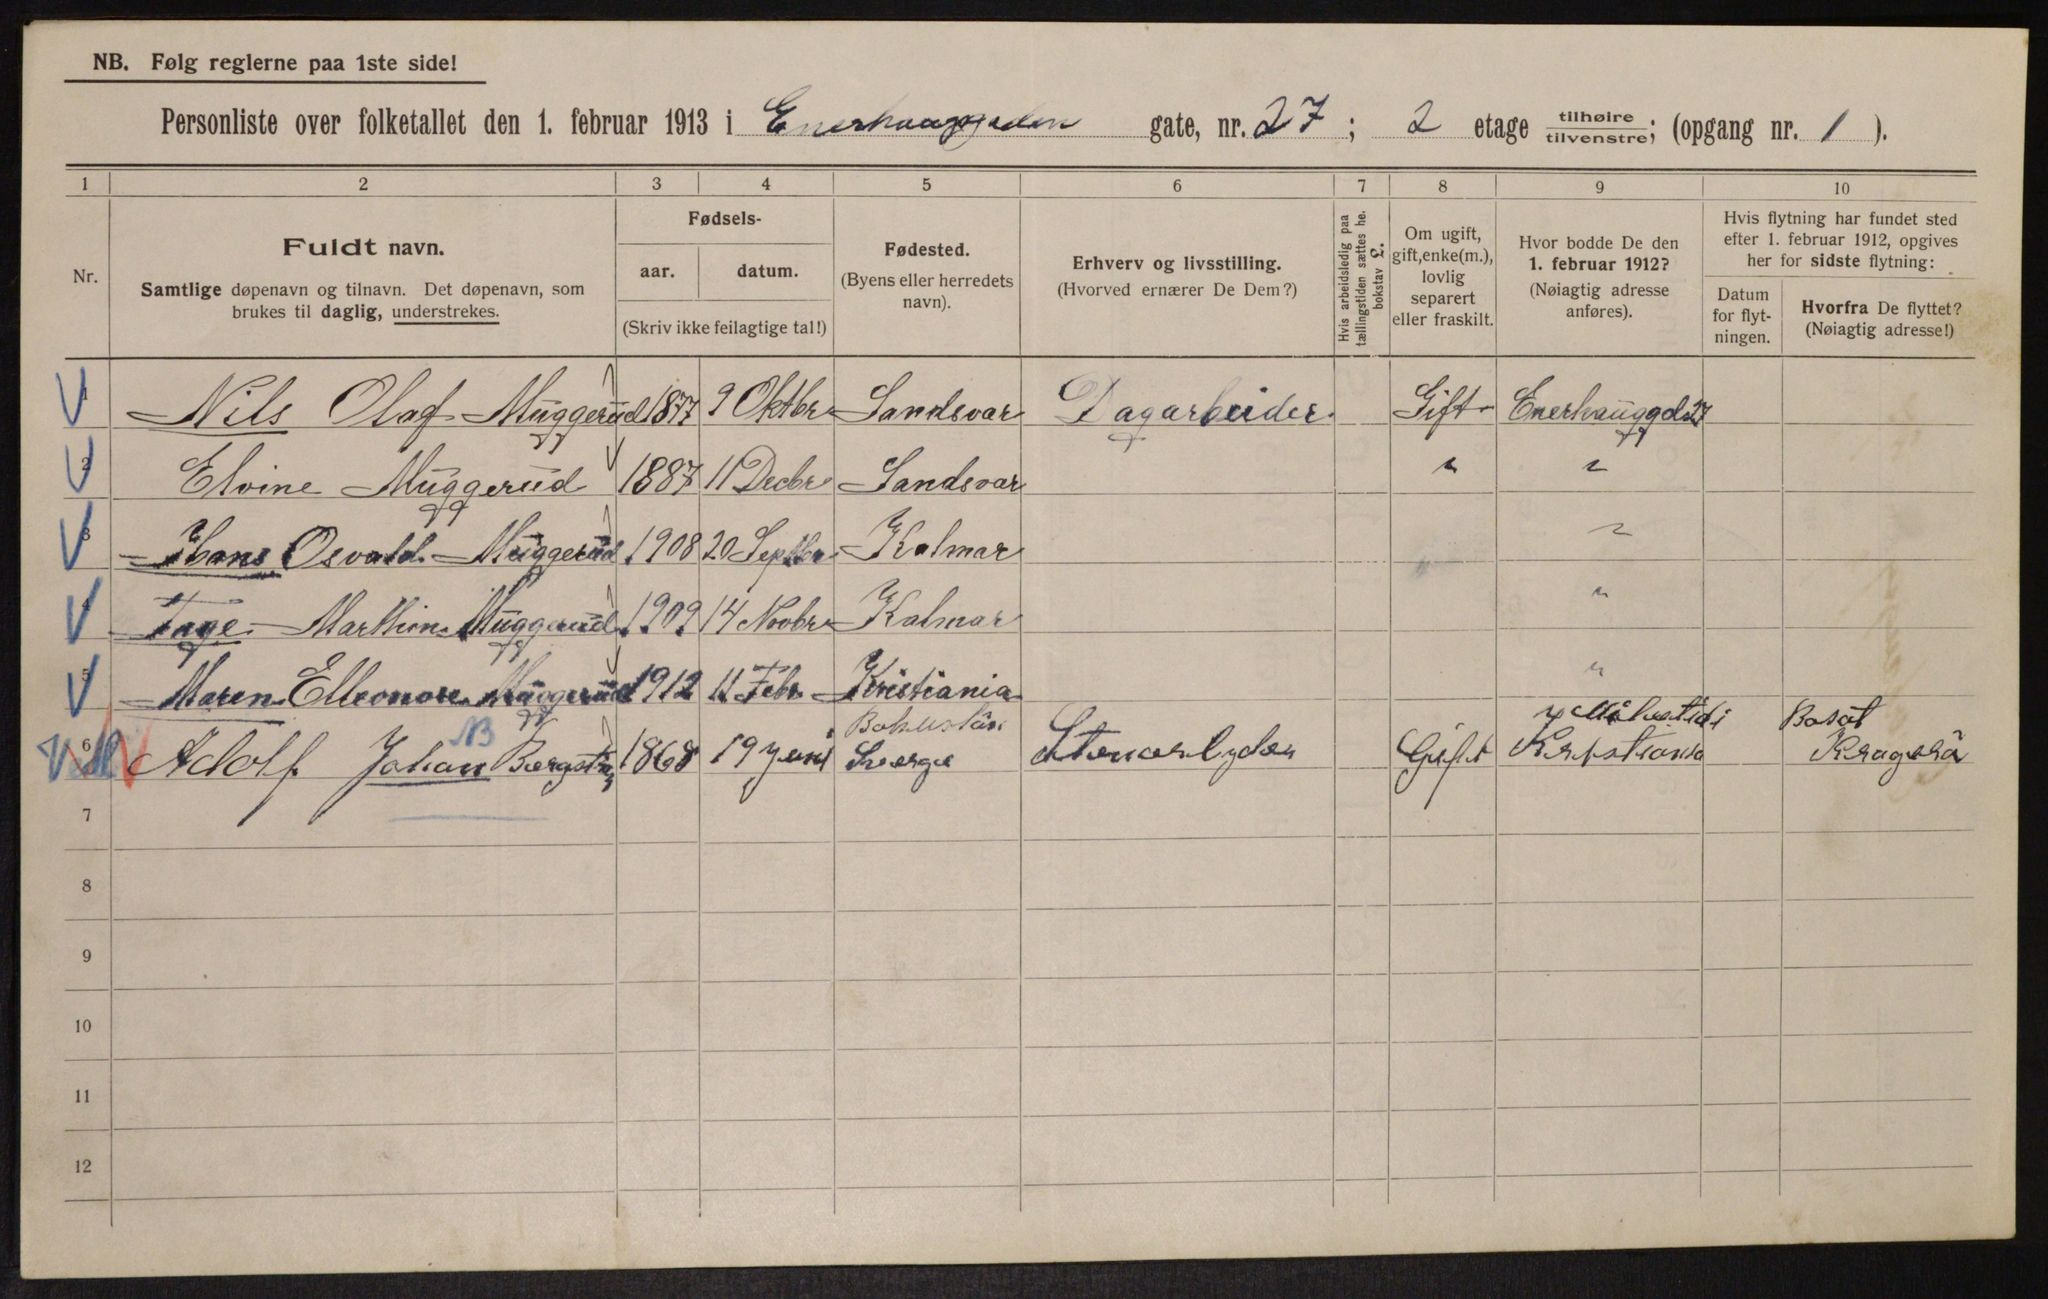 NB. Følg reglerne paa 1ste side!
Personliste over folketallet den 1. februar 1913 i Enerhauggaden gate, nr. 27; 2 etage tilhøire/tilvenstre; (opgang nr. 1).
1 2 3 4 5 6 7 8 9 10
Nr.
Fuldt navn.
Samtlige døpenavn og tilnavn. Det døpenavn, som
brukes til daglig, understrekes.
Fødsels-
aar. datum.
(Skriv ikke feilagtige tal!)
Fødested.
(Byens eller herredets
navn).
Erhverv og livsstilling.
(Hvorved ernærer De Dem?)
Hvis arbeidsledig paa
tællingstiden sættes he.
bokstav L.
Om ugift,
gift, enke(m.),
lovlig
separert
eller fraskilt.
Hvor bodde De den
1. februar 1912?
(Nøiagtig adresse
anføres).
Hvis flytning har fundet sted
efter 1. februar 1912, opgives
her for sidste flytning:
Datum
for flyt-
ningen.
Hvorfra De flyttet?
(Nøiagtig adresse!)
1 Nils Olaf Muggerud 1877 9 Oktbr Sandsvar Dagarbeider Gift Enerhauggd 27
2 Elvine Muggerud 1887 11 Decbr Sandsvar " "
3 Hans Osvald Muggerud 1908 20 Septbr Kalmar "
4 Tage Marthin Muggerud 1909 14 Novbr Kalmar "
5 Maren Elleonore Muggerud 1912 11 Febr Kristiania "
NB Bohuslän i Basöt
6 Adolf Johan 1868 19 Juni Sverge Gift Kristiania Kragerö
7
8
9
10
11
12